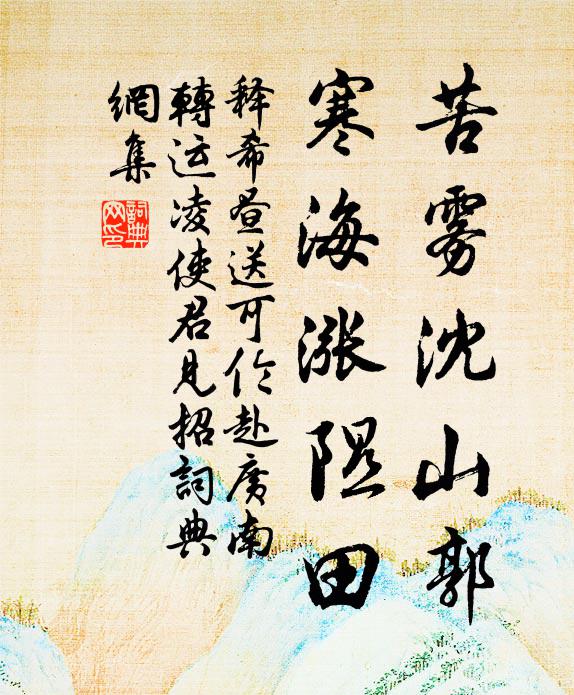 苦雾沈山郭
寒海漲隰田
释希昼送可伦赴廣南
轉运凌使君見招詞典
網集
詞典
网印